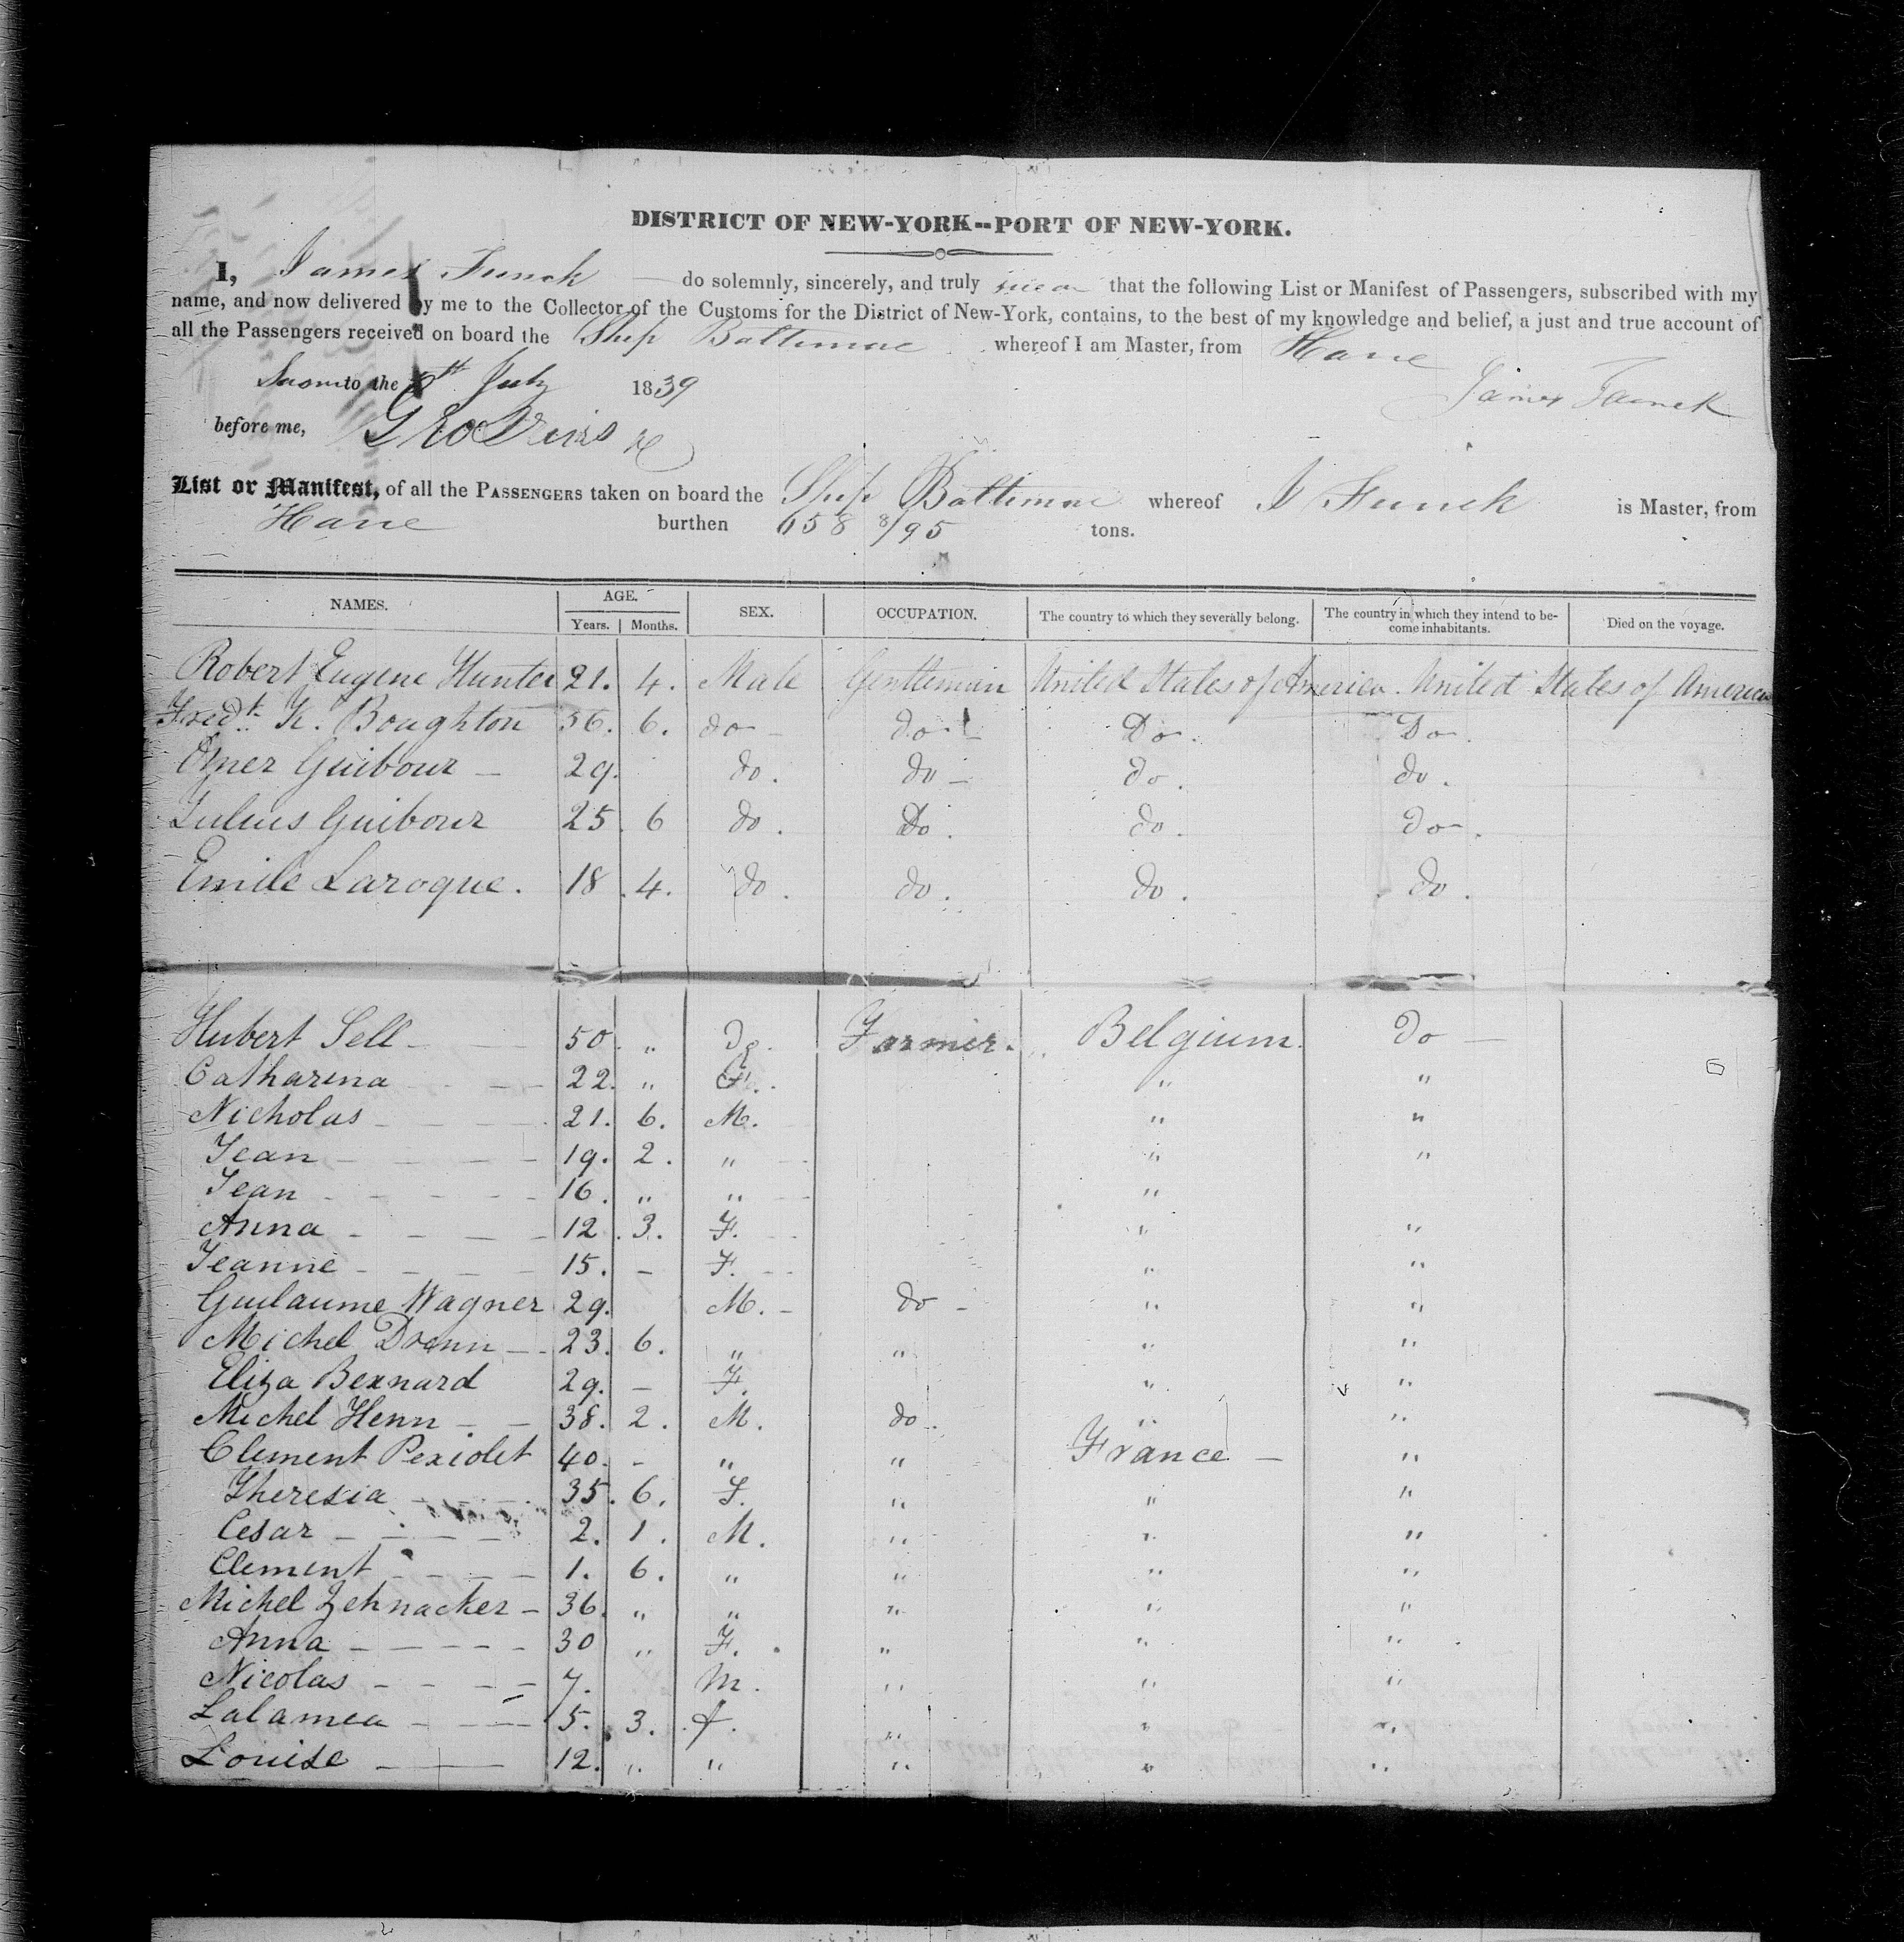 DISTRICT OF NEW-YORK--PORT OF NEW-YORK.
I, James Funck do solemnly, sincerely, and truly swear that the following List or Manifest of Passengers, subscribed with my
name, and now delivered by me to the Collector of the Customs for the District of New-York, contains, to the best of my knowledge and belief, a just and true account of
all the Passengers received on board the Ship Baltimore whereof I am Master, from Havre
Sworn to the 8th July 1839 James Funck
before me,
List or Manifest, of all the PASSENGERS taken on board the Ship Baltimore whereof J Funck is Master, from
Havre burthen 658 8/95 tons.
NAMES. AGE. Years. Months. SEX. OCCUPATION. The country to which they severally belong. The country in which they intend to be-come inhabitants. Died on the voyage.
Robert Eugene Hunter 21. 4. Male Gentleman United States of America. United States of America
Fredk. K. Boughton 36. 6. do do Do. Do.
Guibour 29. do. do do. do.
Julius Guibour 25. 6 do. Do. do. do.
Emile Laroque. 18. 4. do. do. do. do.
Hubert Sell 50. " Do. Farmer. Belgium. Do
Catharina 22. " F. " "
Nicholas 21. 6. M. " "
Jean 19. 2. " " "
Jean 16. " " "
Anna 12. 3. F. " "
Jeanne 15. - F. " "
Guilaume Wagner 29. M. do " "
Michel Drenn 23. 6. " " " "
Eliza Bernard 29. - F. " "
Michel Henn 38. 2. M. do. " "
Clement Pexiolet 40. - " " France "
Theresia 35. 6. F. " " "
Cesar 2. 1. M. " " "
Clement 1. 6. " " " "
Michel Zehnacker 36. " " " " "
Anna 30 " F. " " "
Nicolas 7. M. " " "
Lalamea 5. 3. f. " " "
Louise 12. " " " " "